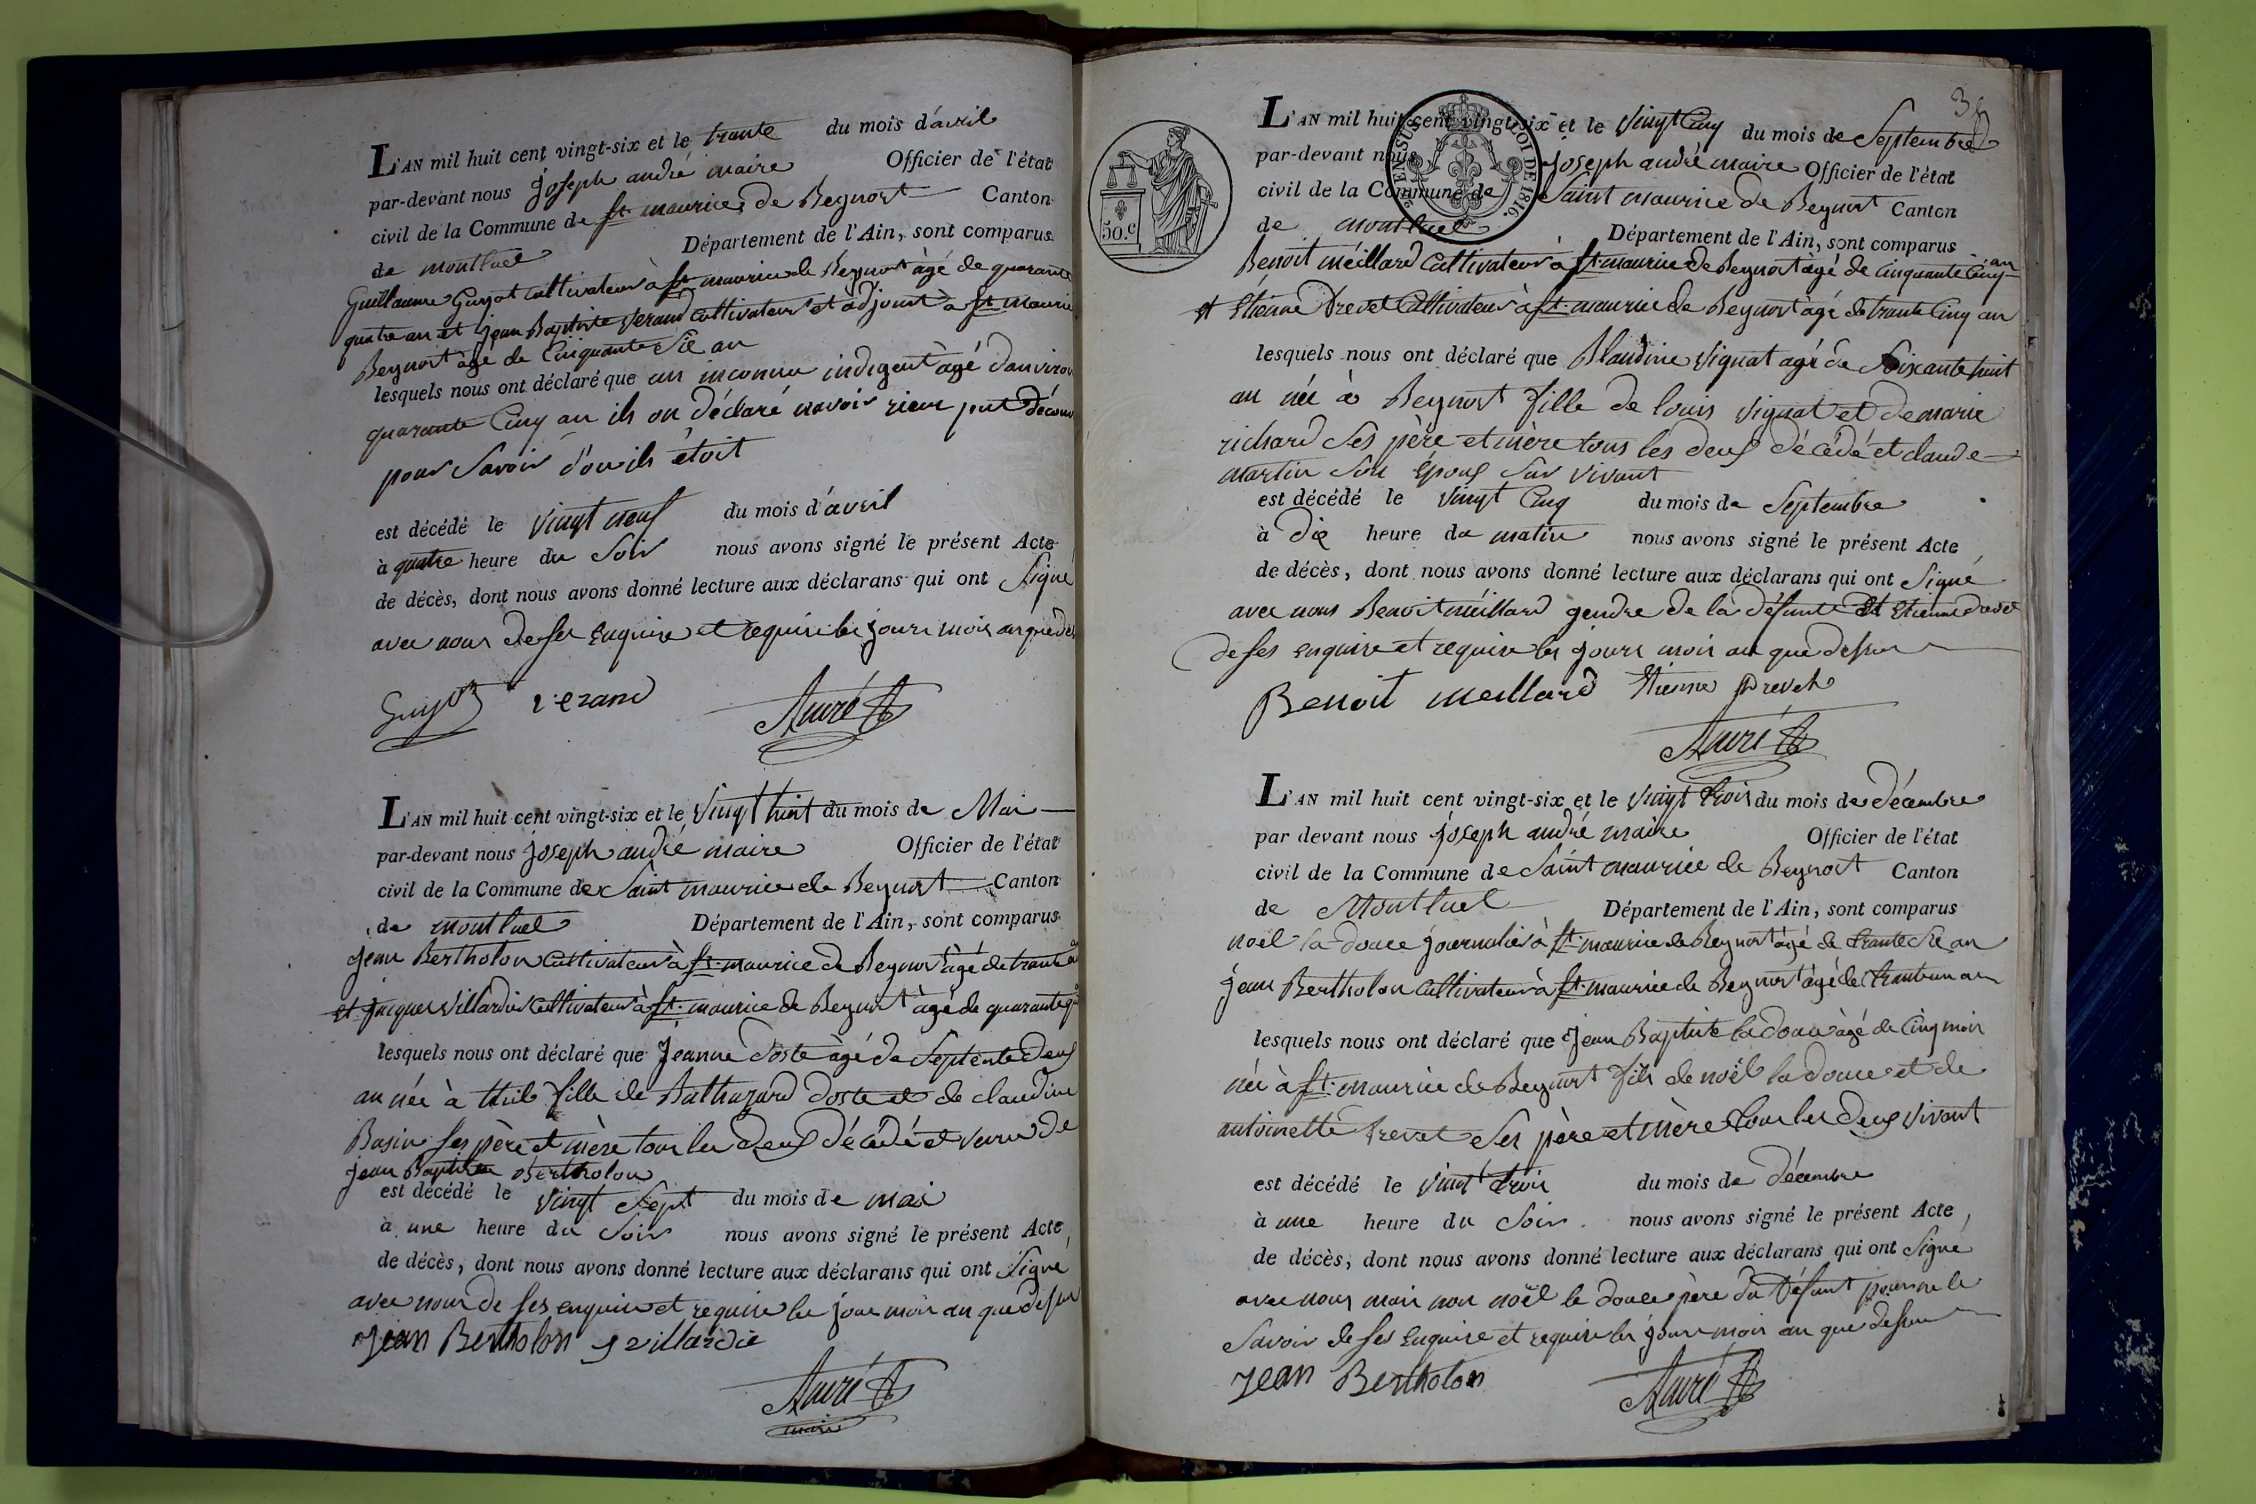 L'AN mil huit cent vingt-six et le trante du mois d'avril
par-devant nous joseph andré maire Officier de l'état
civil de la Commune de St maurice de Beynost Canton
de montluel Département de l'Ain, sont comparus
Guillaume Guyot Cultivateur à St maurice de Beynost âgé de quarante
quatre an et jean Baptiste Verand Cultivateur et adjoint à St Mauric
Beynost âgé de Cinquante Six an
lesquels nous ont déclaré que un inconnu indigent âgé danviron
quarante Cinq an ils on déclaré navoir rien put décou
pour Savoir d'ou ils étoit
est décédé le vingt neuf du mois d'avril
à quatre heure du Soir nous avons signé le présent Acte
de décès, dont nous avons donné lecture aux déclarans qui ont Signé
avec nous de ses Enquire et require les jours mois an que des
Guyot verand
André
L'AN mil huit cent vingt-six et le Vingt huit du mois de Mai
par-devant nous joseph andré maire Officier de l'état
civil de la Commune de Saint maurice de Beynost Canton
de montluel Département de l'Ain, sont comparus
Jean Bertholon Cultivateur à St maurice de Beynost âgé de trante an
et jacques Villardié Cultivateur à St maurice de Beynost âgé de quarante
lesquels nous ont déclaré que Jeanne doste âgé de Septente deux
an née à thil fille de Balthazard doste et de claudine
Basin ses père et mère tous les deux décédé et veuve de
Jean Baptiste Bertholon
est décédé le vingt Sept du mois de mai
à une heure du Soir nous avons signé le présent Acte
de décès, dont nous avons donné lecture aux déclarans qui ont Signé
avec nous de ses enquire et require les jour mois an que dessus
Jean Bertholon J villardie
André
maire
38
ENSUS LOI DE 1816.
50.c
L'AN mil huit cent vingt-six et le Vingt Cinq du mois de Septembre
par-devant nous Joseph andré maire Officier de l'état
civil de la Commune de Saint maurice de Beynost Canton
de montluel Département de l'Ain, sont comparus
Benoit méillard Cultivateur à St maurice de Beynost âgé de Cinquante Cinq an
et Etienne Drevet Cultivateur à St maurice de Beynost âgé de trante Cinq an
lesquels nous ont déclaré que Blandine Vignat agé de Soixante huit
an née à Beynost fille de louis Vignat et de marie
richard Ses père et mère tous les deux décédé et claude
martin Son Epoux Sur vivant
est décédé le vingt Cinq du mois de Septembre
à Dix heure du matin nous avons signé le présent Acte
de décès, dont nous avons donné lecture aux déclarans qui ont Signé
avec nous Benoit méillard gendre de la défunte Et Etienne drevet
de ses enquire et require les jours mois an que dessus
Benoit meillard Etienne Drevet
André
L'AN mil huit cent vingt-six et le Vingt trois du mois de décembre
par devant nous joseph andré maire Officier de l'état
civil de la Commune de Saint maurice de Beynost Canton
de Montluel Département de l'Ain, sont comparus
noël la douce journalier à St maurice de Beynost âgé de trante Six an
jean Bertholon Cultivateur à St maurice de Beynost âgé de trante un an
lesquels nous ont déclaré que Jean Baptiste la douce âgé de Cinq mois
née à St maurice de Beynost fils de noël la douce et de
antoinette Trevet Ses père et mère tous les deux Vivant
est décédé le vingt trois du mois de décembre
à une heure du Soir nous avons signé le présent Acte
de décès, dont nous avons donné lecture aux déclarans qui ont Signé
avec nous mais non noël la douce père du défunt pour ne le
Savoir de ses Enquire et require les jours mois an que dessus
Jean Bertholon
André